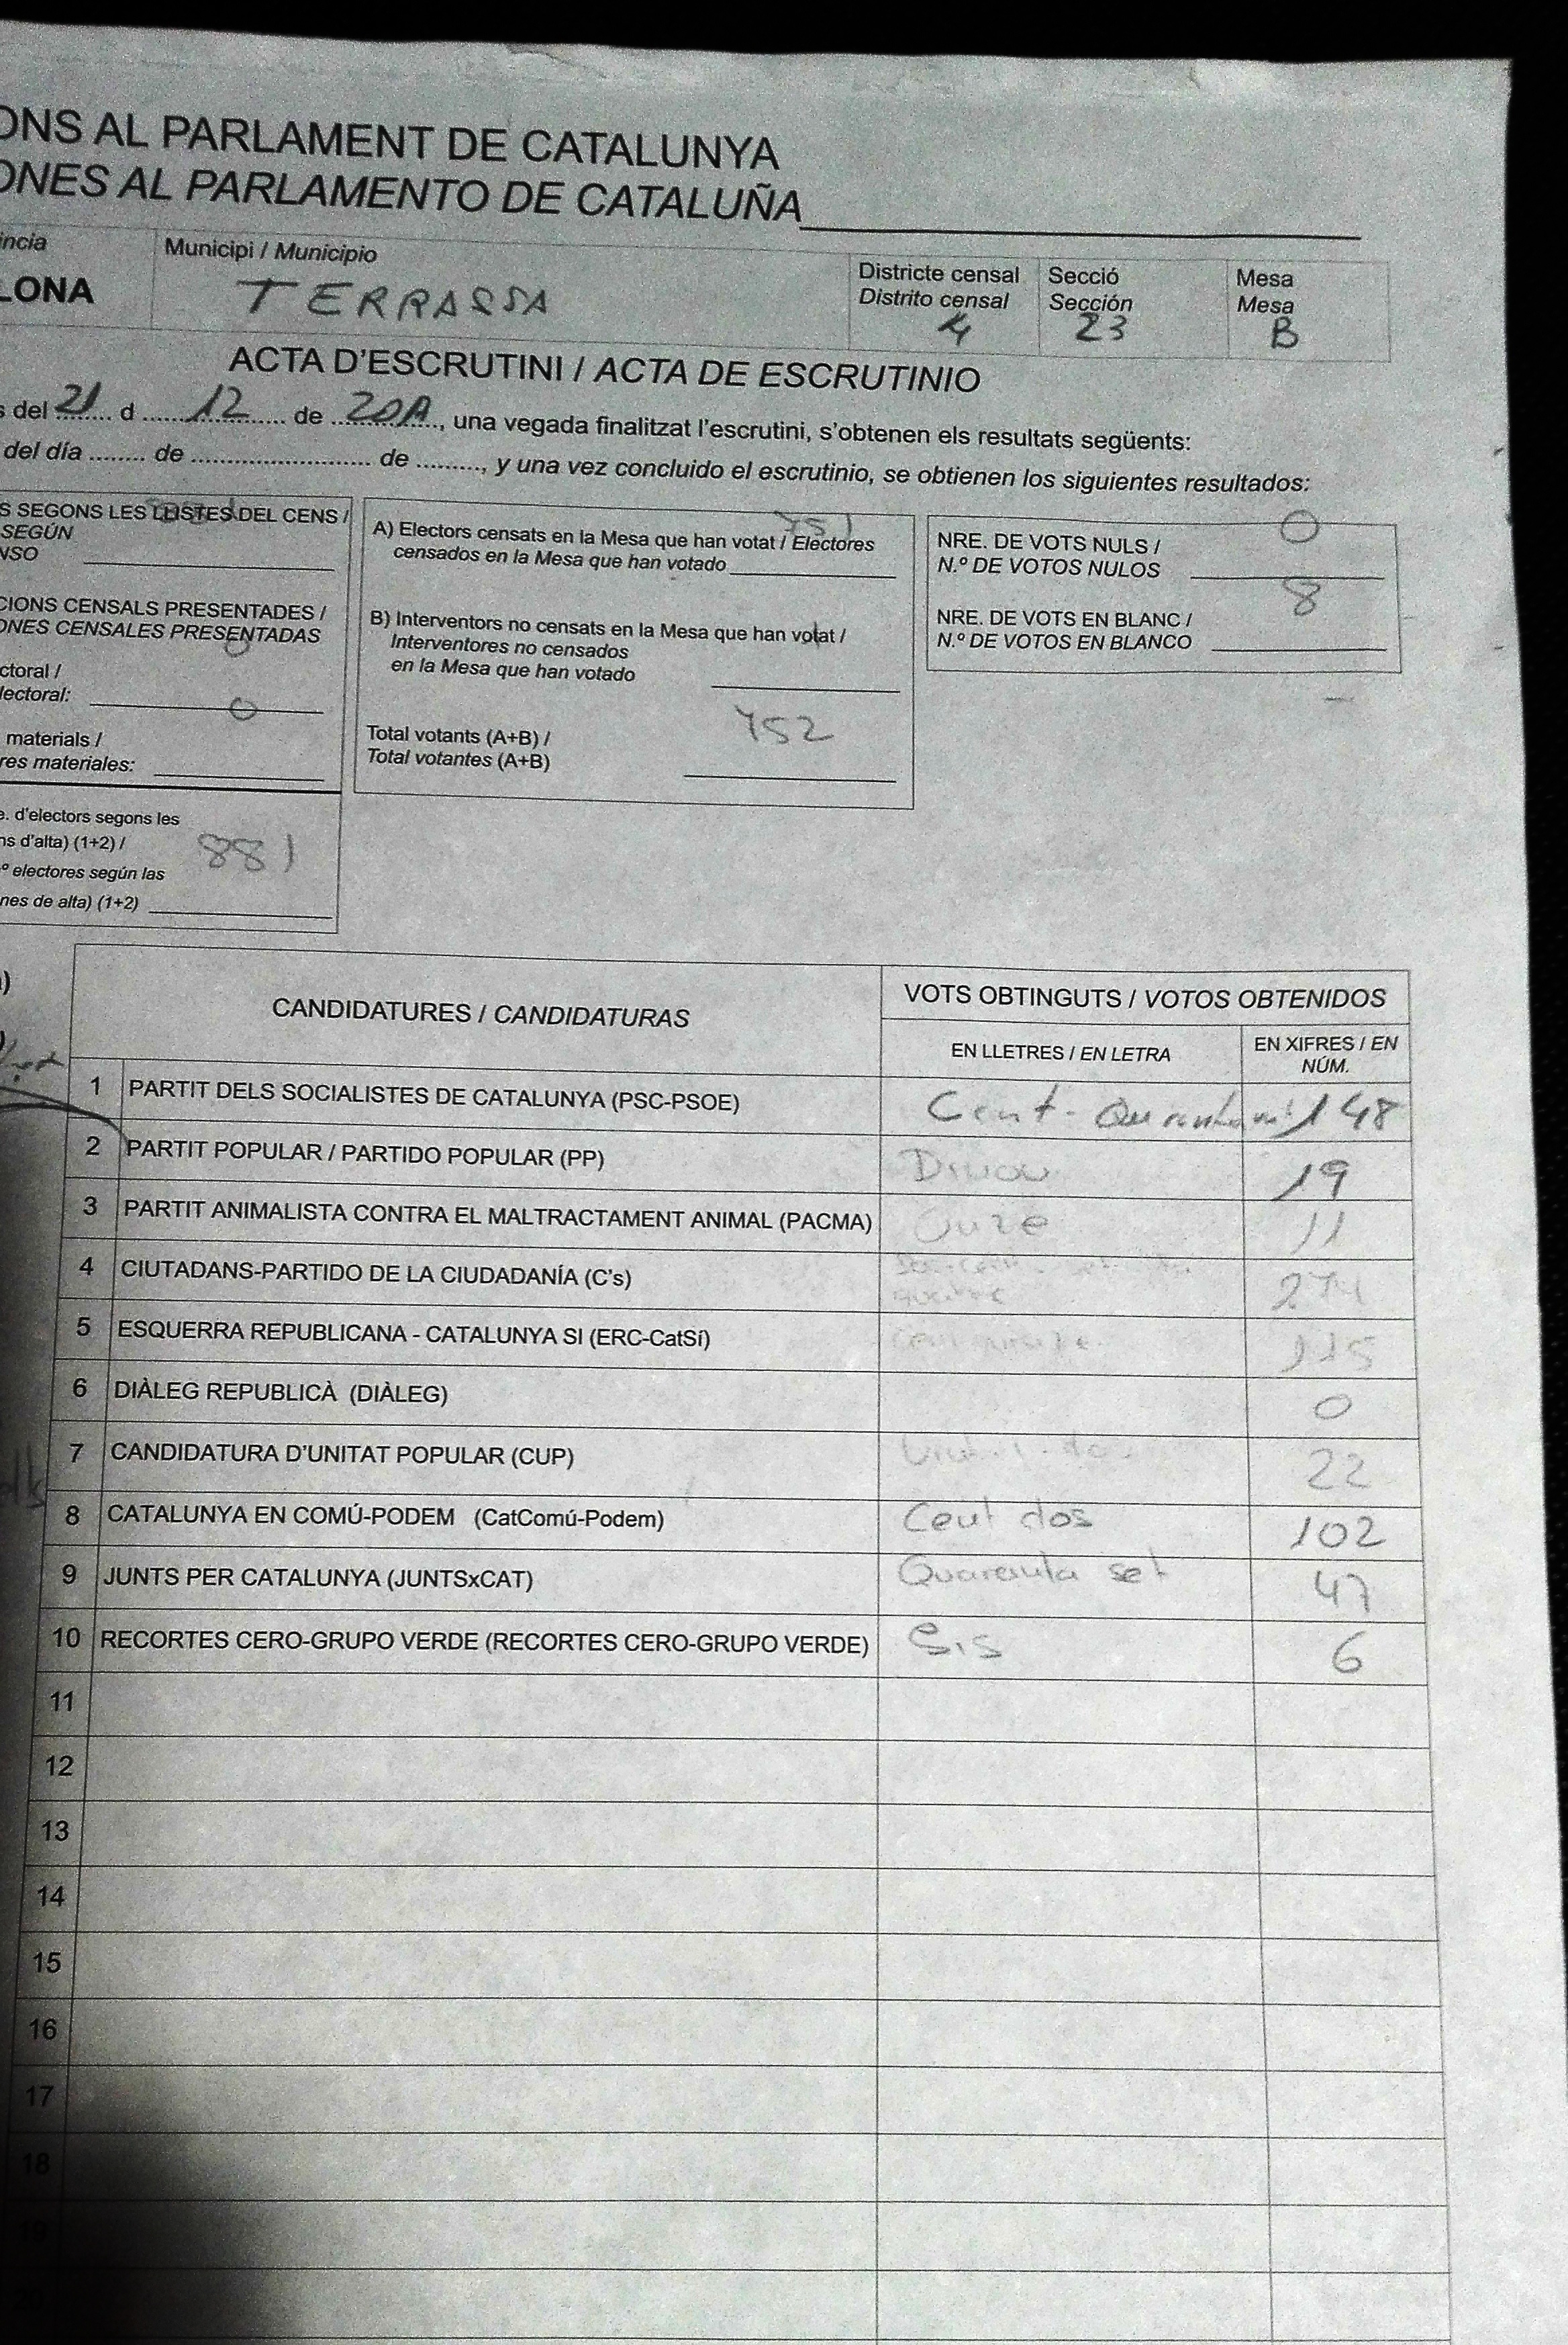 ONS AL PARLAMENT DE CATALUNYA
ONES AL PARLAMENTO DE CATALUÑA
incia Municipi / Municipio Districte censal Secció Mesa
Distrito censal Sección Mesa
LONA TERRASSA 4 23 B
ACTA D'ESCRUTINI / ACTA DE ESCRUTINIO
s del 21 d 12 de, una vegada finalitzat l'escrutini, s'obtenen els resultats següents:
del día ........ de ............................ de ........., y una vez concluido el escrutinio, se obtienen los siguientes resultados:
S SEGONS LES LLISTES DEL CENS /
SEGÚN
NSO
CIONS CENSALS PRESENTADES /
ONES CENSALES PRESENTADAS
0
ctoral /
lectoral:
0
materials /
res materiales:
e. d'electors segons les
ns d'alta) (1+2) /
881
º electores según las
nes de alta) (1+2)
751
A) Electors censats en la Mesa que han votat / Electores
censados en la Mesa que han votado
B) Interventors no censats en la Mesa que han votat /
Interventores no censados
en la Mesa que han votado
1
752
Total votants (A+B) /
Total votantes (A+B)
0
NRE. DE VOTS NULS /
N.º DE VOTOS NULOS
8
NRE. DE VOTS EN BLANC /
N.º DE VOTOS EN BLANCO
CANDIDATURES / CANDIDATURAS VOTS OBTINGUTS / VOTOS OBTENIDOS
EN LLETRES / EN LETRA EN XIFRES / EN
NÚM.
1 PARTIT DELS SOCIALISTES DE CATALUNYA (PSC-PSOE) Cent 148
2 PARTIT POPULAR / PARTIDO POPULAR (PP) Dinou 19
3 PARTIT ANIMALISTA CONTRA EL MALTRACTAMENT ANIMAL (PACMA) Onze 11
4 CIUTADANS-PARTIDO DE LA CIUDADANÍA (C's) 274
5 ESQUERRA REPUBLICANA - CATALUNYA SI (ERC-CatSí) 115
6 DIÀLEG REPUBLICÀ (DIÀLEG) 0
7 CANDIDATURA D'UNITAT POPULAR (CUP) 22
8 CATALUNYA EN COMÚ-PODEM (CatComú-Podem) Cent dos 102
9 JUNTS PER CATALUNYA (JUNTSxCAT) Quaranta set 47
10 RECORTES CERO-GRUPO VERDE (RECORTES CERO-GRUPO VERDE) Sis 6
11
12
13
14
15
16
17
18
19
20